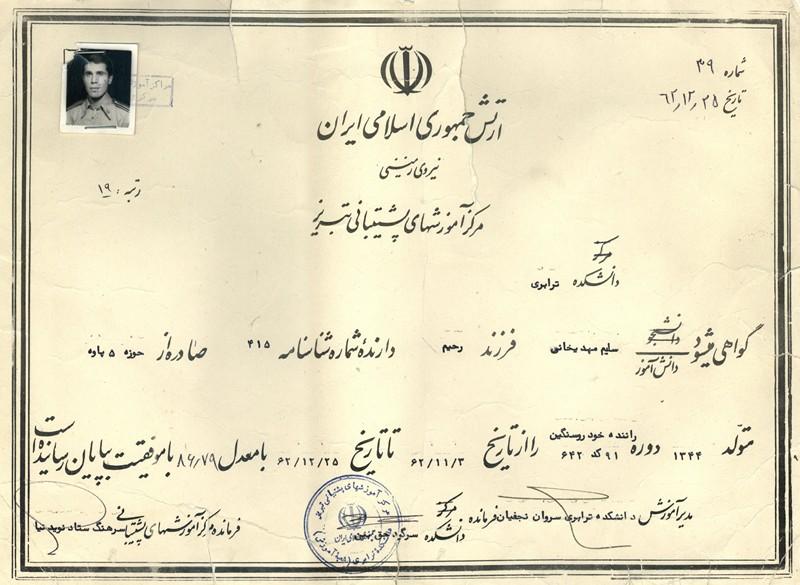 شماره ۳۹
تاریخ ۶۲٫۱۲٫۲۵
ارتش جمهوری اسلامی ایران
نیروی زمینی
مرکز آموزشهای پشتیبانی تبریز
رتبه : ۱۹
مرکز
دانشکده ترابری
گواهی میشود دانشجو سلیم مهدیخانی فرزند رحیم دارندهٔ شماره شناسنامه ۴۱۵ صادره از حوزه ۵ پاوه
دانش آموز
متولد ۱۳۴۴ دوره راننده خودروسنگین را از تاریخ ۶۲/۱۱/۳ تا تاریخ ۶۲/۱۲/۲۵ با معدل ۸۶٫۷۹ با موفقیت بپایان رسانیده است
۹۱ کد ۶۴۲
مدیر آموزش دانشکده ترابری سروان نجفیان فرمانده مرکز دانشکده سرگرد فرمانده مرکز آموزشهای پشتیبانی سرهنگ ستاد نوید نیا